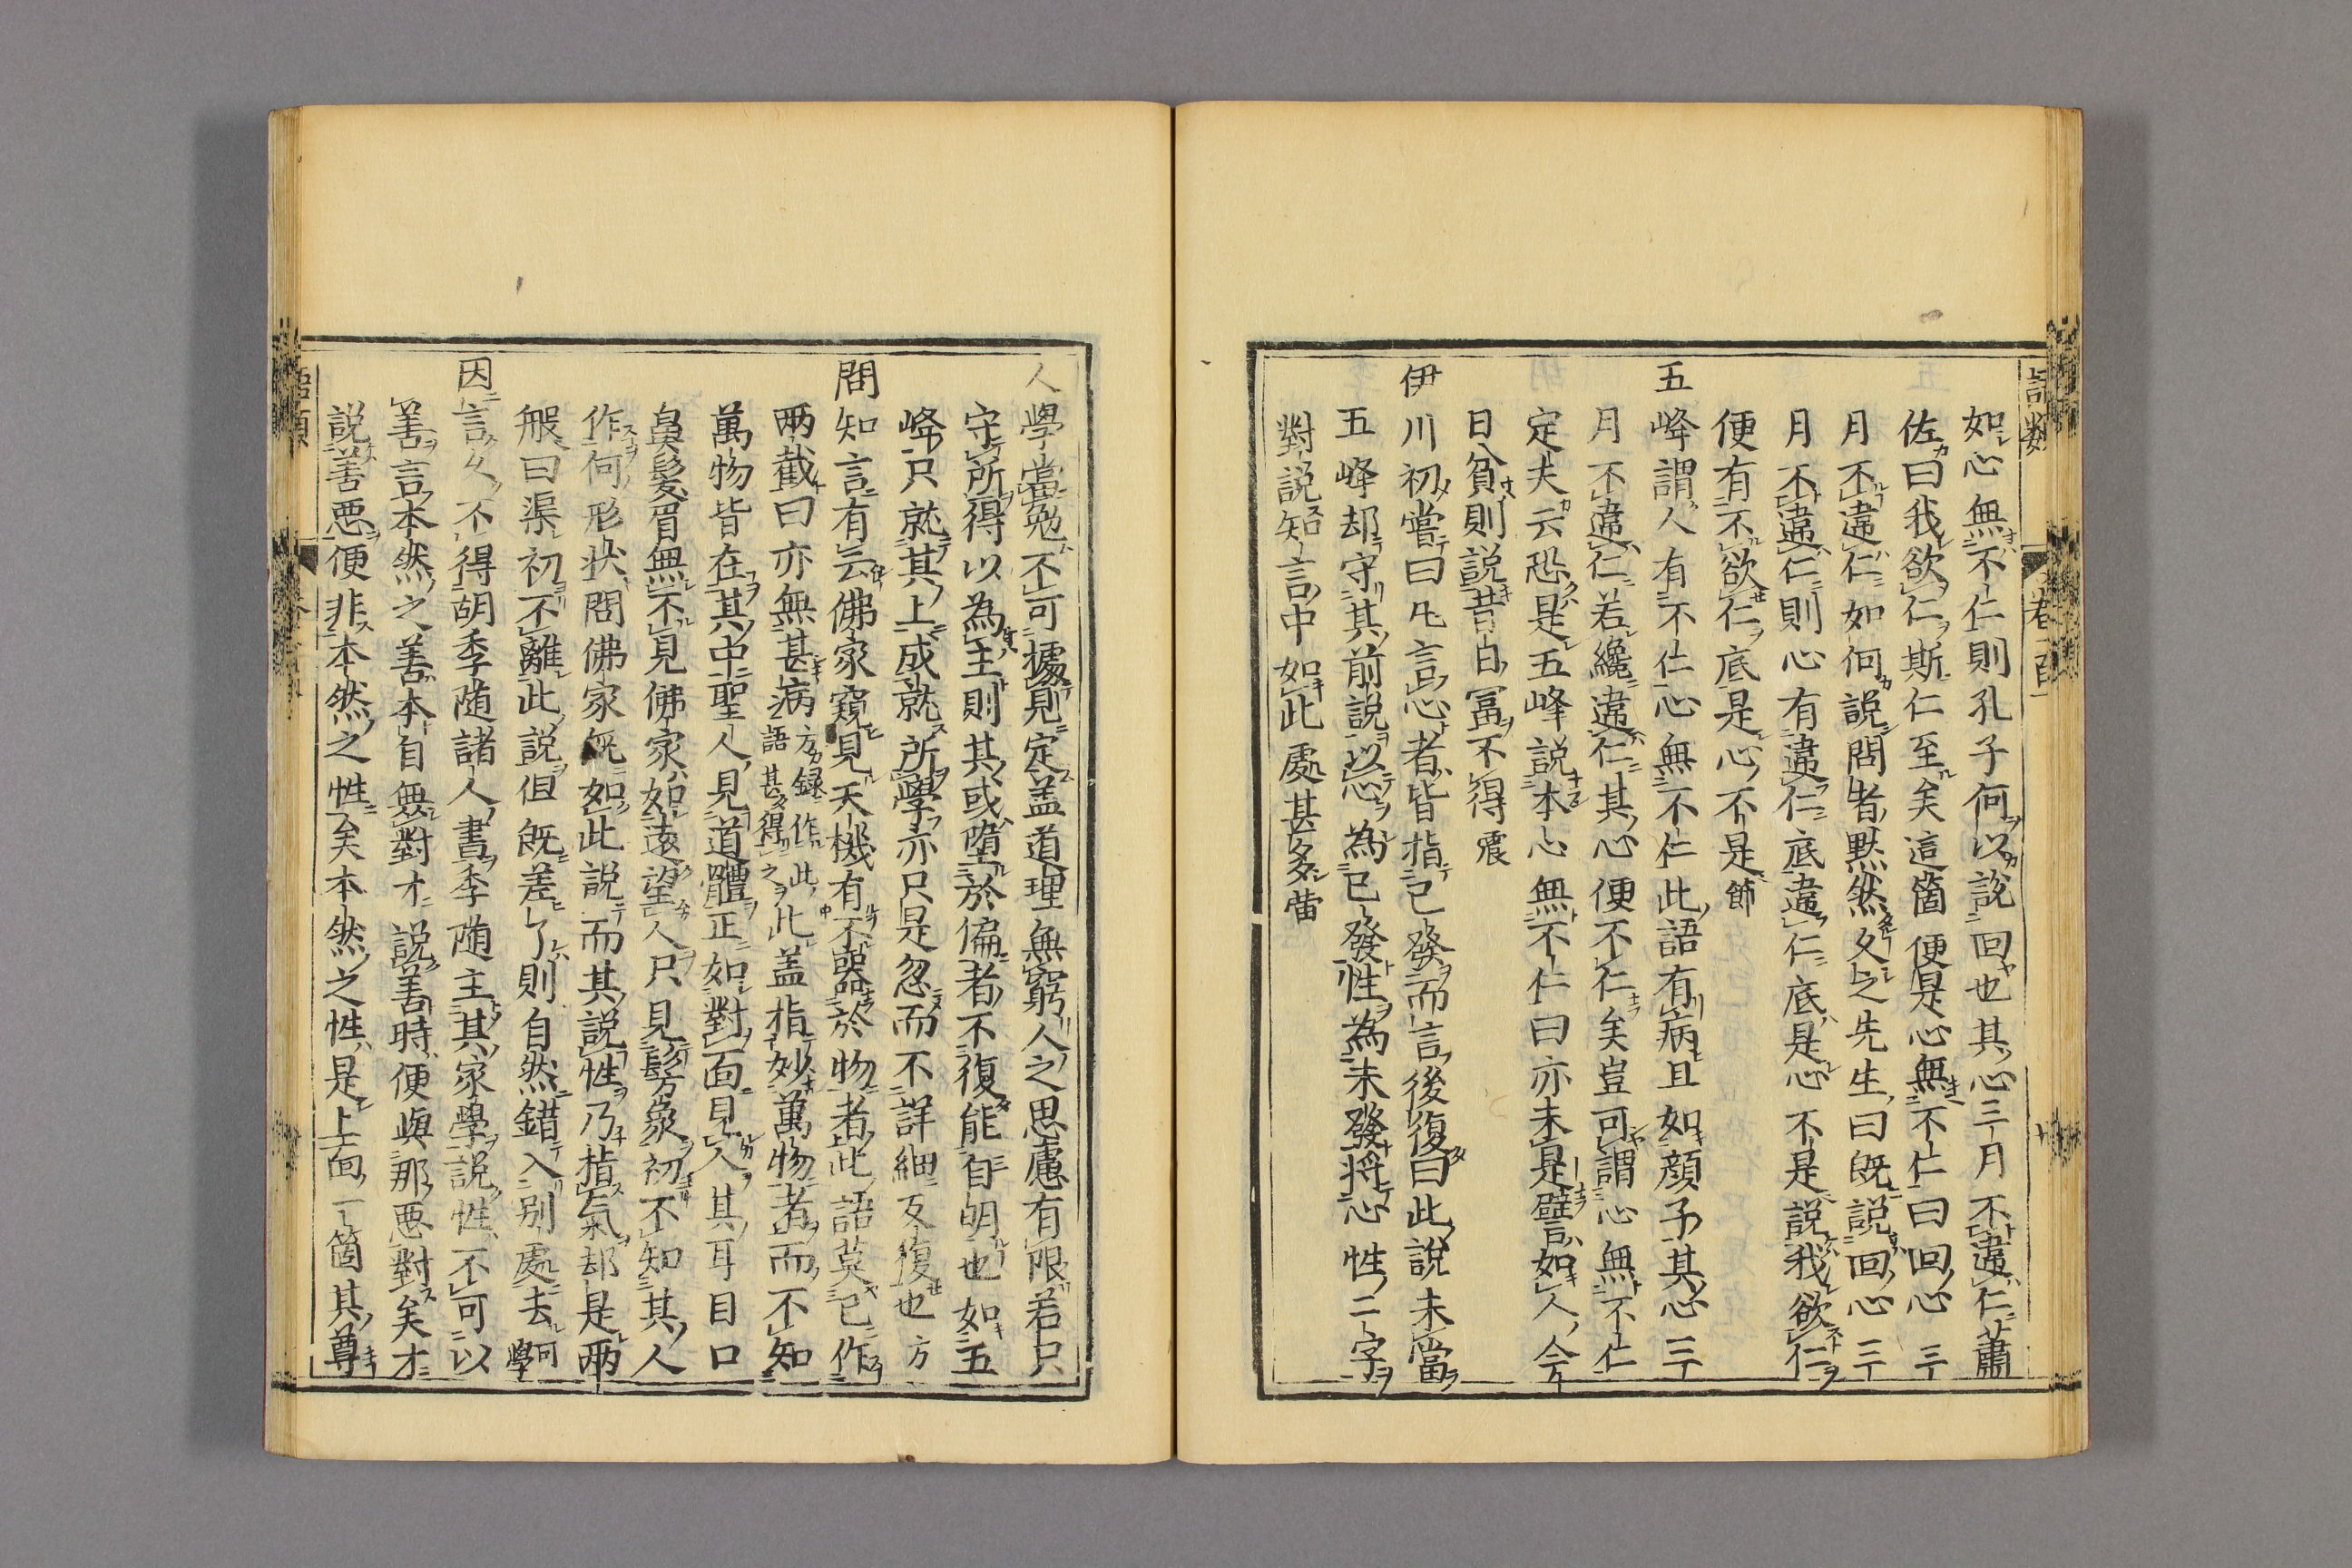 語類 卷百一
如心無不仁則孔子何以說回也其心三月不違仁蕭
佐曰我欲仁斯仁至矣這箇便是心無不仁曰回心三
月不違仁如何說問者默然久之先生曰既說回心三
月不違仁則心有違仁底違仁底是心不是說我欲仁
便有不欲仁底是心不是 節
五峰謂人有不仁心無不仁此語有病且如顏子其心三
月不違仁若纔違仁其心便不仁矣豈可謂心無不仁
定夫云恐是五峰說本心無不仁曰亦未是譬如人今
日貧則說昔日富不得 震
伊川初嘗曰凡言心者皆指已發而言後復曰此說未當
五峰却守其前說以心為已發性為未發將心性二字
對說知言中如此處甚多 䕫
人學當勉不可據見定蓋道理無窮人之思慮有限若只
守所得以為主則其或墮於偏者不復能自明也如五
峰只就其上成就所學亦只是忽而不詳細反復也 方
問知言有云佛家窺見天機有不器於物者此語莫已作
兩截曰亦無甚病 方錄作此語甚得之 此蓋指妙萬物者而不知
萬物皆在其中聖人見道體正如對面見人其耳目口
鼻髮眉無不見佛家如遠望人只見髣象初不知其人
作何形狀問佛家既如此說而其說性乃指氣却是兩
般曰渠初不離此說但既差了則自然錯入別處去 可學
因言久不得胡季隨諸人書季隨主其家學說性不可以
善言本然之善本自無對才說善時便與那惡對矣才
說善惡便非本然之性矣本然之性是上面一箇其尊
語類